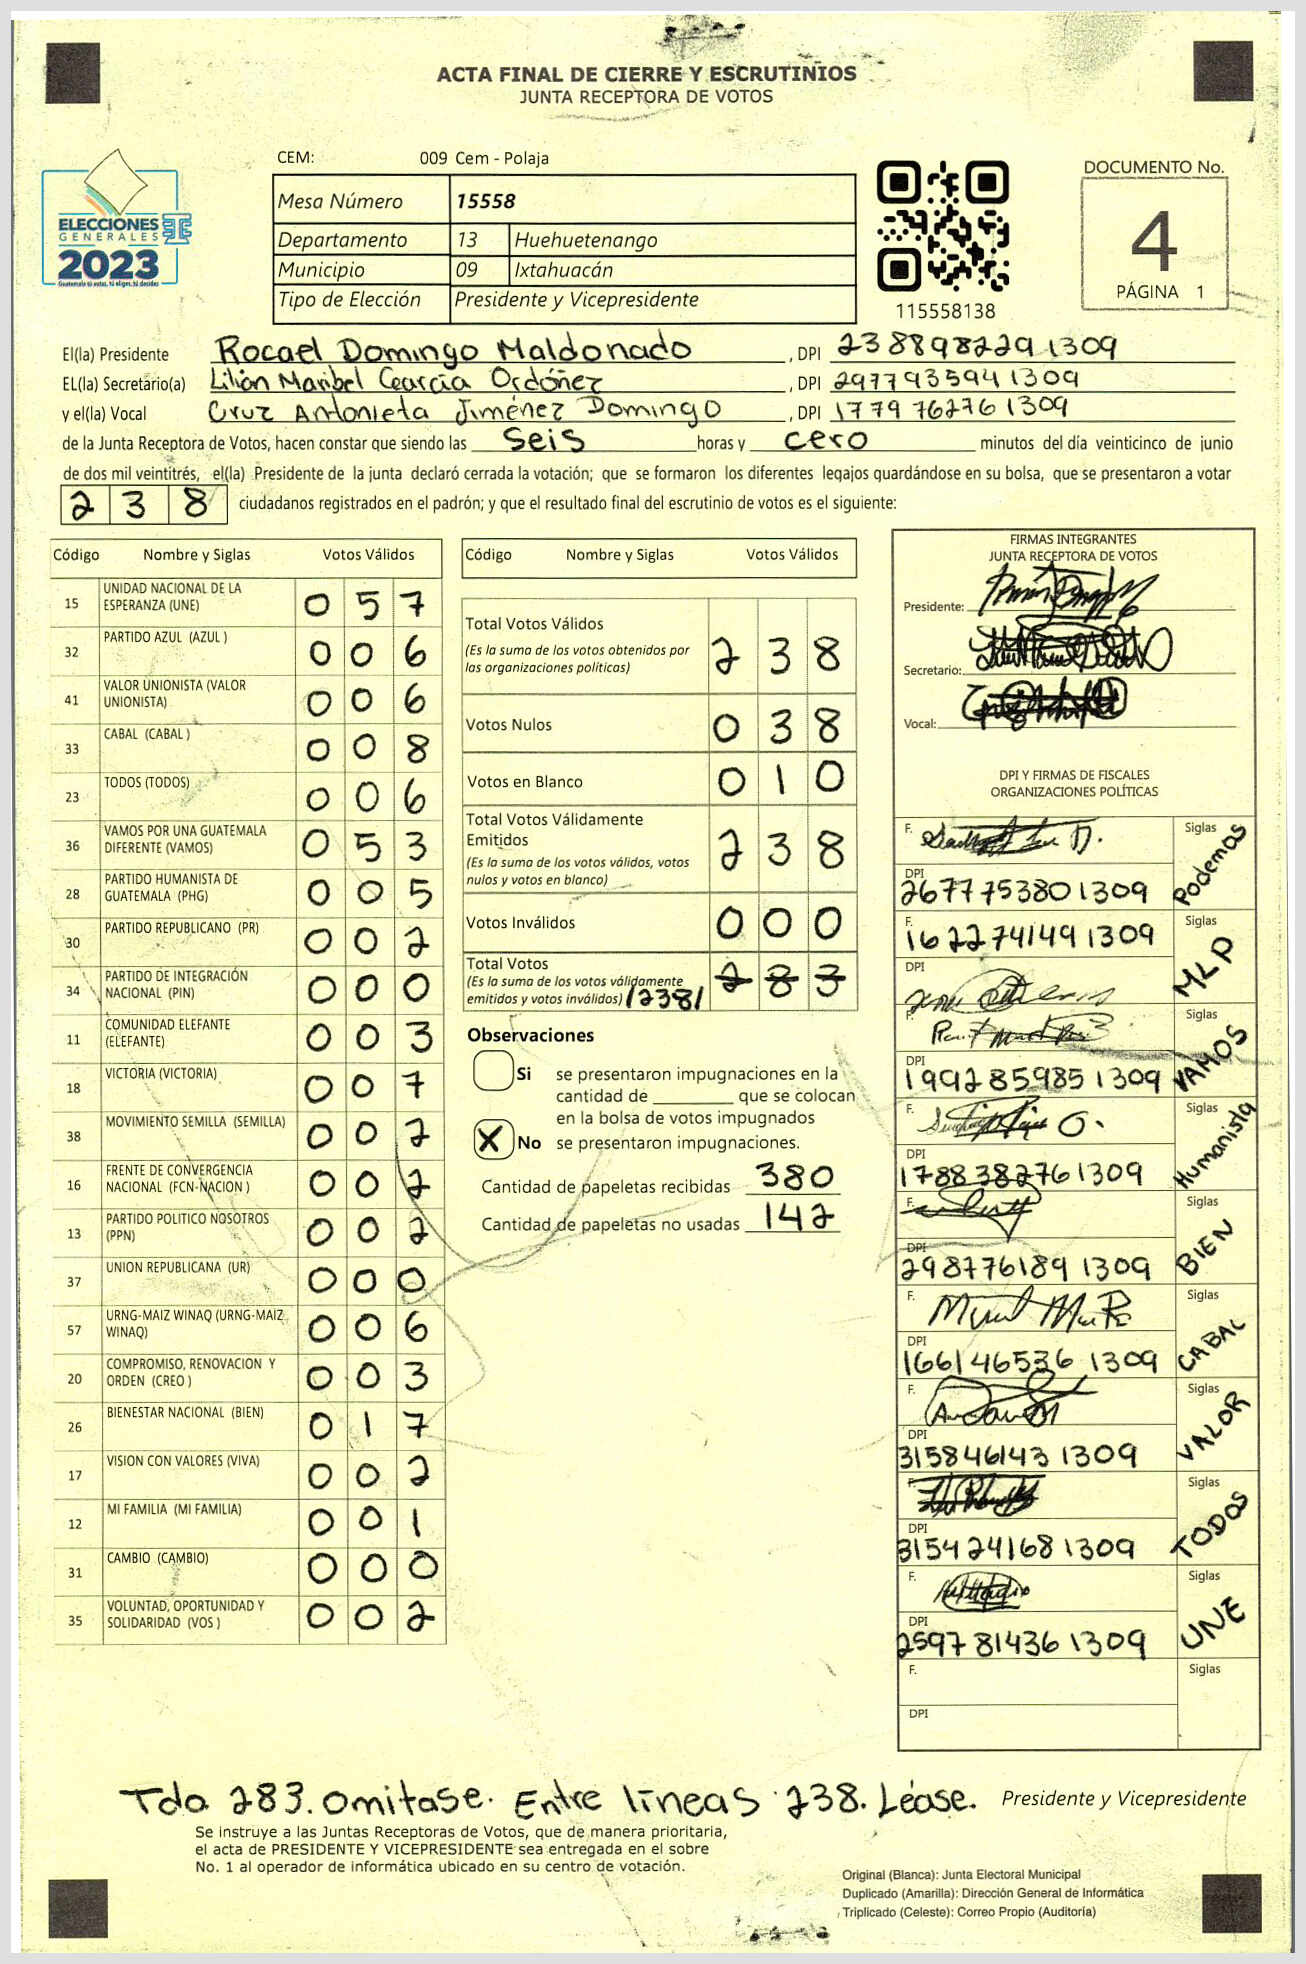 ACTA FINAL DE CIERRE Y ESCRUTINIOS
JUNTA RECEPTORA DE VOTOS
CEM: 009 Cem - Polaja
ELECCIONES
GENERALES
2023
Guatemala tú votas, tú eliges, tú decides
Mesa Número 15558
Departamento 13 Huehuetenango
Municipio 09 Ixtahuacán
Tipo de Elección Presidente y Vicepresidente
115558138
DOCUMENTO No.
4
PÁGINA 1
El(la) Presidente Rocael Domingo Maldonado, DPI 2388982291309
EL(la) Secretario(a) Lilian Maribel Gearcia Ordóñez, DPI 2977935941309
y el(la) Vocal Cruz Antonieta Jiménez Domingo, DPI 1779762761309
de la Junta Receptora de Votos, hacen constar que siendo las seis horas y cero minutos del día veinticinco de junio
de dos mil veintitrés, el(la) Presidente de la junta declaró cerrada la votación; que se formaron los diferentes legajos guardándose en su bolsa, que se presentaron a votar
238 ciudadanos registrados en el padrón; y que el resultado final del escrutinio de votos es el siguiente:
Código Nombre y Siglas Votos Válidos
15 UNIDAD NACIONAL DE LA ESPERANZA (UNE) 0 5 7
32 PARTIDO AZUL (AZUL ) 0 0 6
41 VALOR UNIONISTA (VALOR UNIONISTA) 0 0 6
33 CABAL (CABAL ) 0 0 8
23 TODOS (TODOS) 0 0 6
36 VAMOS POR UNA GUATEMALA DIFERENTE (VAMOS) 0 5 3
28 PARTIDO HUMANISTA DE GUATEMALA (PHG) 0 0 5
30 PARTIDO REPUBLICANO (PR) 0 0 2
34 PARTIDO DE INTEGRACIÓN NACIONAL (PIN) 0 0 0
11 COMUNIDAD ELEFANTE (ELEFANTE) 0 0 3
18 VICTORIA (VICTORIA) 0 0 7
38 MOVIMIENTO SEMILLA (SEMILLA) 0 0 2
16 FRENTE DE CONVERGENCIA NACIONAL (FCN-NACION ) 0 0 2
13 PARTIDO POLITICO NOSOTROS (PPN) 0 0 2
37 UNION REPUBLICANA (UR) 0 0 0
57 URNG-MAIZ WINAQ (URNG-MAIZ WINAQ) 0 0 6
20 COMPROMISO, RENOVACION Y ORDEN (CREO ) 0 0 3
26 BIENESTAR NACIONAL (BIEN) 0 1 7
17 VISION CON VALORES (VIVA) 0 0 2
12 MI FAMILIA (MI FAMILIA) 0 0 1
31 CAMBIO (CAMBIO) 0 0 0
35 VOLUNTAD, OPORTUNIDAD Y SOLIDARIDAD (VOS ) 0 0 2
Código Nombre y Siglas Votos Válidos
Total Votos Válidos 2 3 8
(Es la suma de los votos obtenidos por
las organizaciones políticas)
Votos Nulos 0 3 8
Votos en Blanco 0 1 0
Total Votos Válidamente
Emitidos 2 3 8
(Es la suma de los votos válidos, votos
nulos y votos en blanco)
Votos Inválidos 0 0 0
Total Votos 2 8 3
(Es la suma de los votos válidamente
emitidos y votos inválidos) /238/
Observaciones
Si se presentaron impugnaciones en la
cantidad de ________ que se colocan
en la bolsa de votos impugnados
X No se presentaron impugnaciones.
Cantidad de papeletas recibidas 380
Cantidad de papeletas no usadas 142
FIRMAS INTEGRANTES
JUNTA RECEPTORA DE VOTOS
Presidente:
Secretario:
Vocal:
DPI Y FIRMAS DE FISCALES
ORGANIZACIONES POLÍTICAS
F. Siglas Podemos
DPI 2677753801309
F. 1622741491309 Siglas MLP
DPI
F. Siglas VAMOS
DPI 1992859851309
F. Siglas Humanista
DPI 1788382761309
F. Siglas BIEN
DPI 2987761891309
F. Siglas CABAL
DPI 1661465361309
F. Siglas VALOR
DPI 3158461431309
F. Siglas TODOS
DPI 3154241681309
F. Siglas UNE
DPI 2597814361309
F. Siglas
DPI
Tdo 283. Omitase. Entre líneas 238. Léase.
Presidente y Vicepresidente
Se instruye a las Juntas Receptoras de Votos, que de manera prioritaria,
el acta de PRESIDENTE Y VICEPRESIDENTE sea entregada en el sobre
No. 1 al operador de informática ubicado en su centro de votación.
Original (Blanca): Junta Electoral Municipal
Duplicado (Amarilla): Dirección General de Informática
Triplicado (Celeste): Correo Propio (Auditoría)